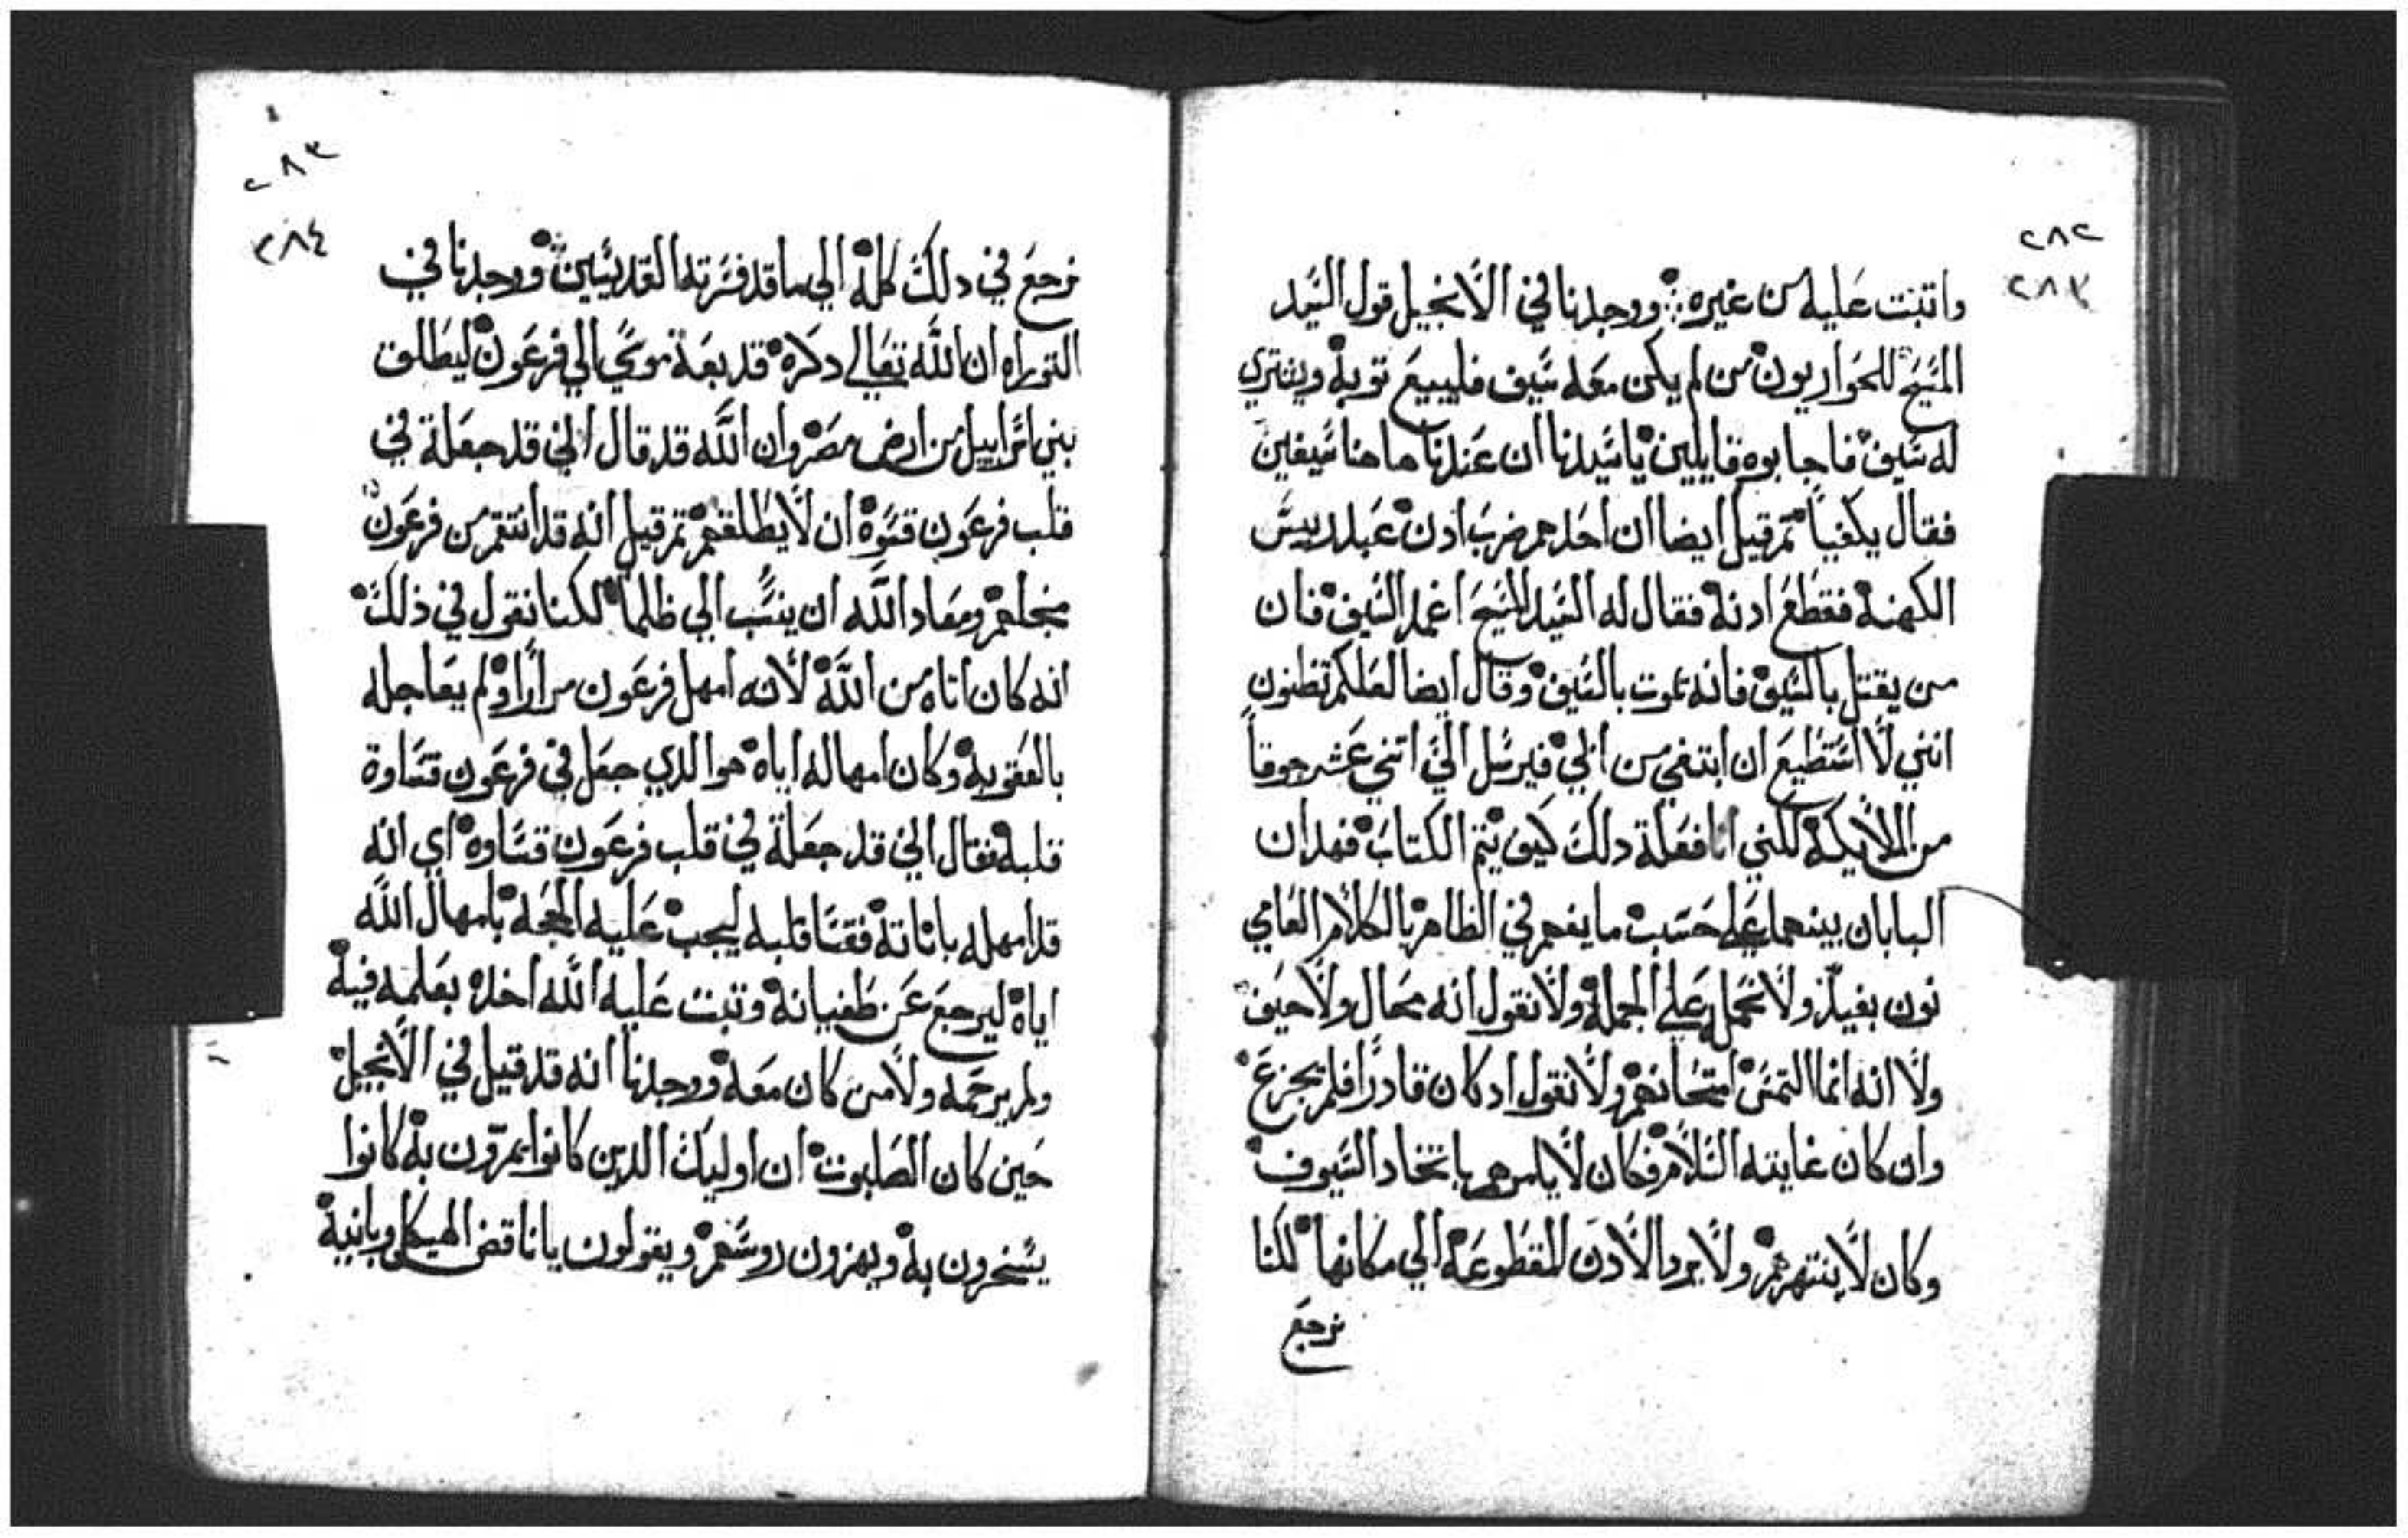 ٢٨٢
٢٨٣
واتبتت عليه من غيره ووجدنا في الانجيل قول السيد
المسيح للحواريون من لم يكن معه سيف فليبيع توبه ويشتري
له سيف فاجابوه قايلين ياسيدنا ان عندنا هاهنا سيفين
فقال يكفيا تم قيل ايضا ان احدهم ضرب ادن عبد لرييس
الكهنه فقطع ادنه فقال له السيد المسيح اغمد السيف فان
من يقتل بالسيف فانه يموت بالسيف وقال ايضا لعلكم تظنون
انني لا استطيع ان ابتغي من ابي فيرسل الي اتني عشر جوقاً
من الملايكه لكني انا فعلة دلك كيف يتم الكتاب فهدان
البابان بينهما علي حسب ما يفهم في الظاهر بالكلام العامي
نون بعيد ولا نحمل علي الجمله ولا نقول انه محال ولا حيف
ولا انه انما التمس امتحانهم ولا نقول اد كان قادراً فلم يجزع
وان كان غايته السلام فكان لا يامرهم باتخاد السيوف
وكان لا ينتهرهم ولا يرد الادن المقطوعه الي مكانها لكنا
نرجع
٢٨٣
٢٨٤
نرجع في دلك كله الي ما قد فسرته القديسين ووجدنا في
التوراه ان الله تعالي دكره قد بعة موسي الي فرعون ليطلق
بني اسراييل من ارض مصر وان الله قد قال اني قد جعلة في
قلب فرعون قسوه ان لا يطلقهم تم قيل انه قد انتقم من فرعون
منجلهم ومعاد الله ان ينسب الي ظلما لكنا نقول في ذلك
انه كان اناه من الله لانه امهل فرعون مراراً ولم يعاجله
بالعقوبه وكان امهاله اياه هو الدي جعل في فرعون قساوة
قلبه فقال اني قد جعلة في قلب فرعون قساوه اي انه
قد امهله باناته فقسا قلبه ليجب عليه الحجه بامهال الله
اياه ليرجع عن طغيانه وتبت عليه الله اخده بعلمه فيه
ولم يرحمه ولا من كان معه ووجدنا انه قد قيل في الانجيل
حين كان الصلبوت ان اوليك الدين كانوا يمرون به كانوا
يسخرون به ويهزون روسهم ويقولون يا ناقض الهيكل وبانيه